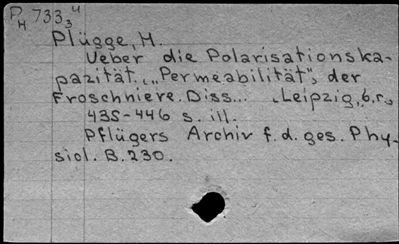 PH 733 4/3
Plügge, H.
Ueber die Polarisationska-
pazität „Permeabilität”, der
Froschniere. Diss... Leipzig, b, r.,
435-446 s. ill.
Pflügers Archiv f. d. ges. Phy-
siol. B. 230.